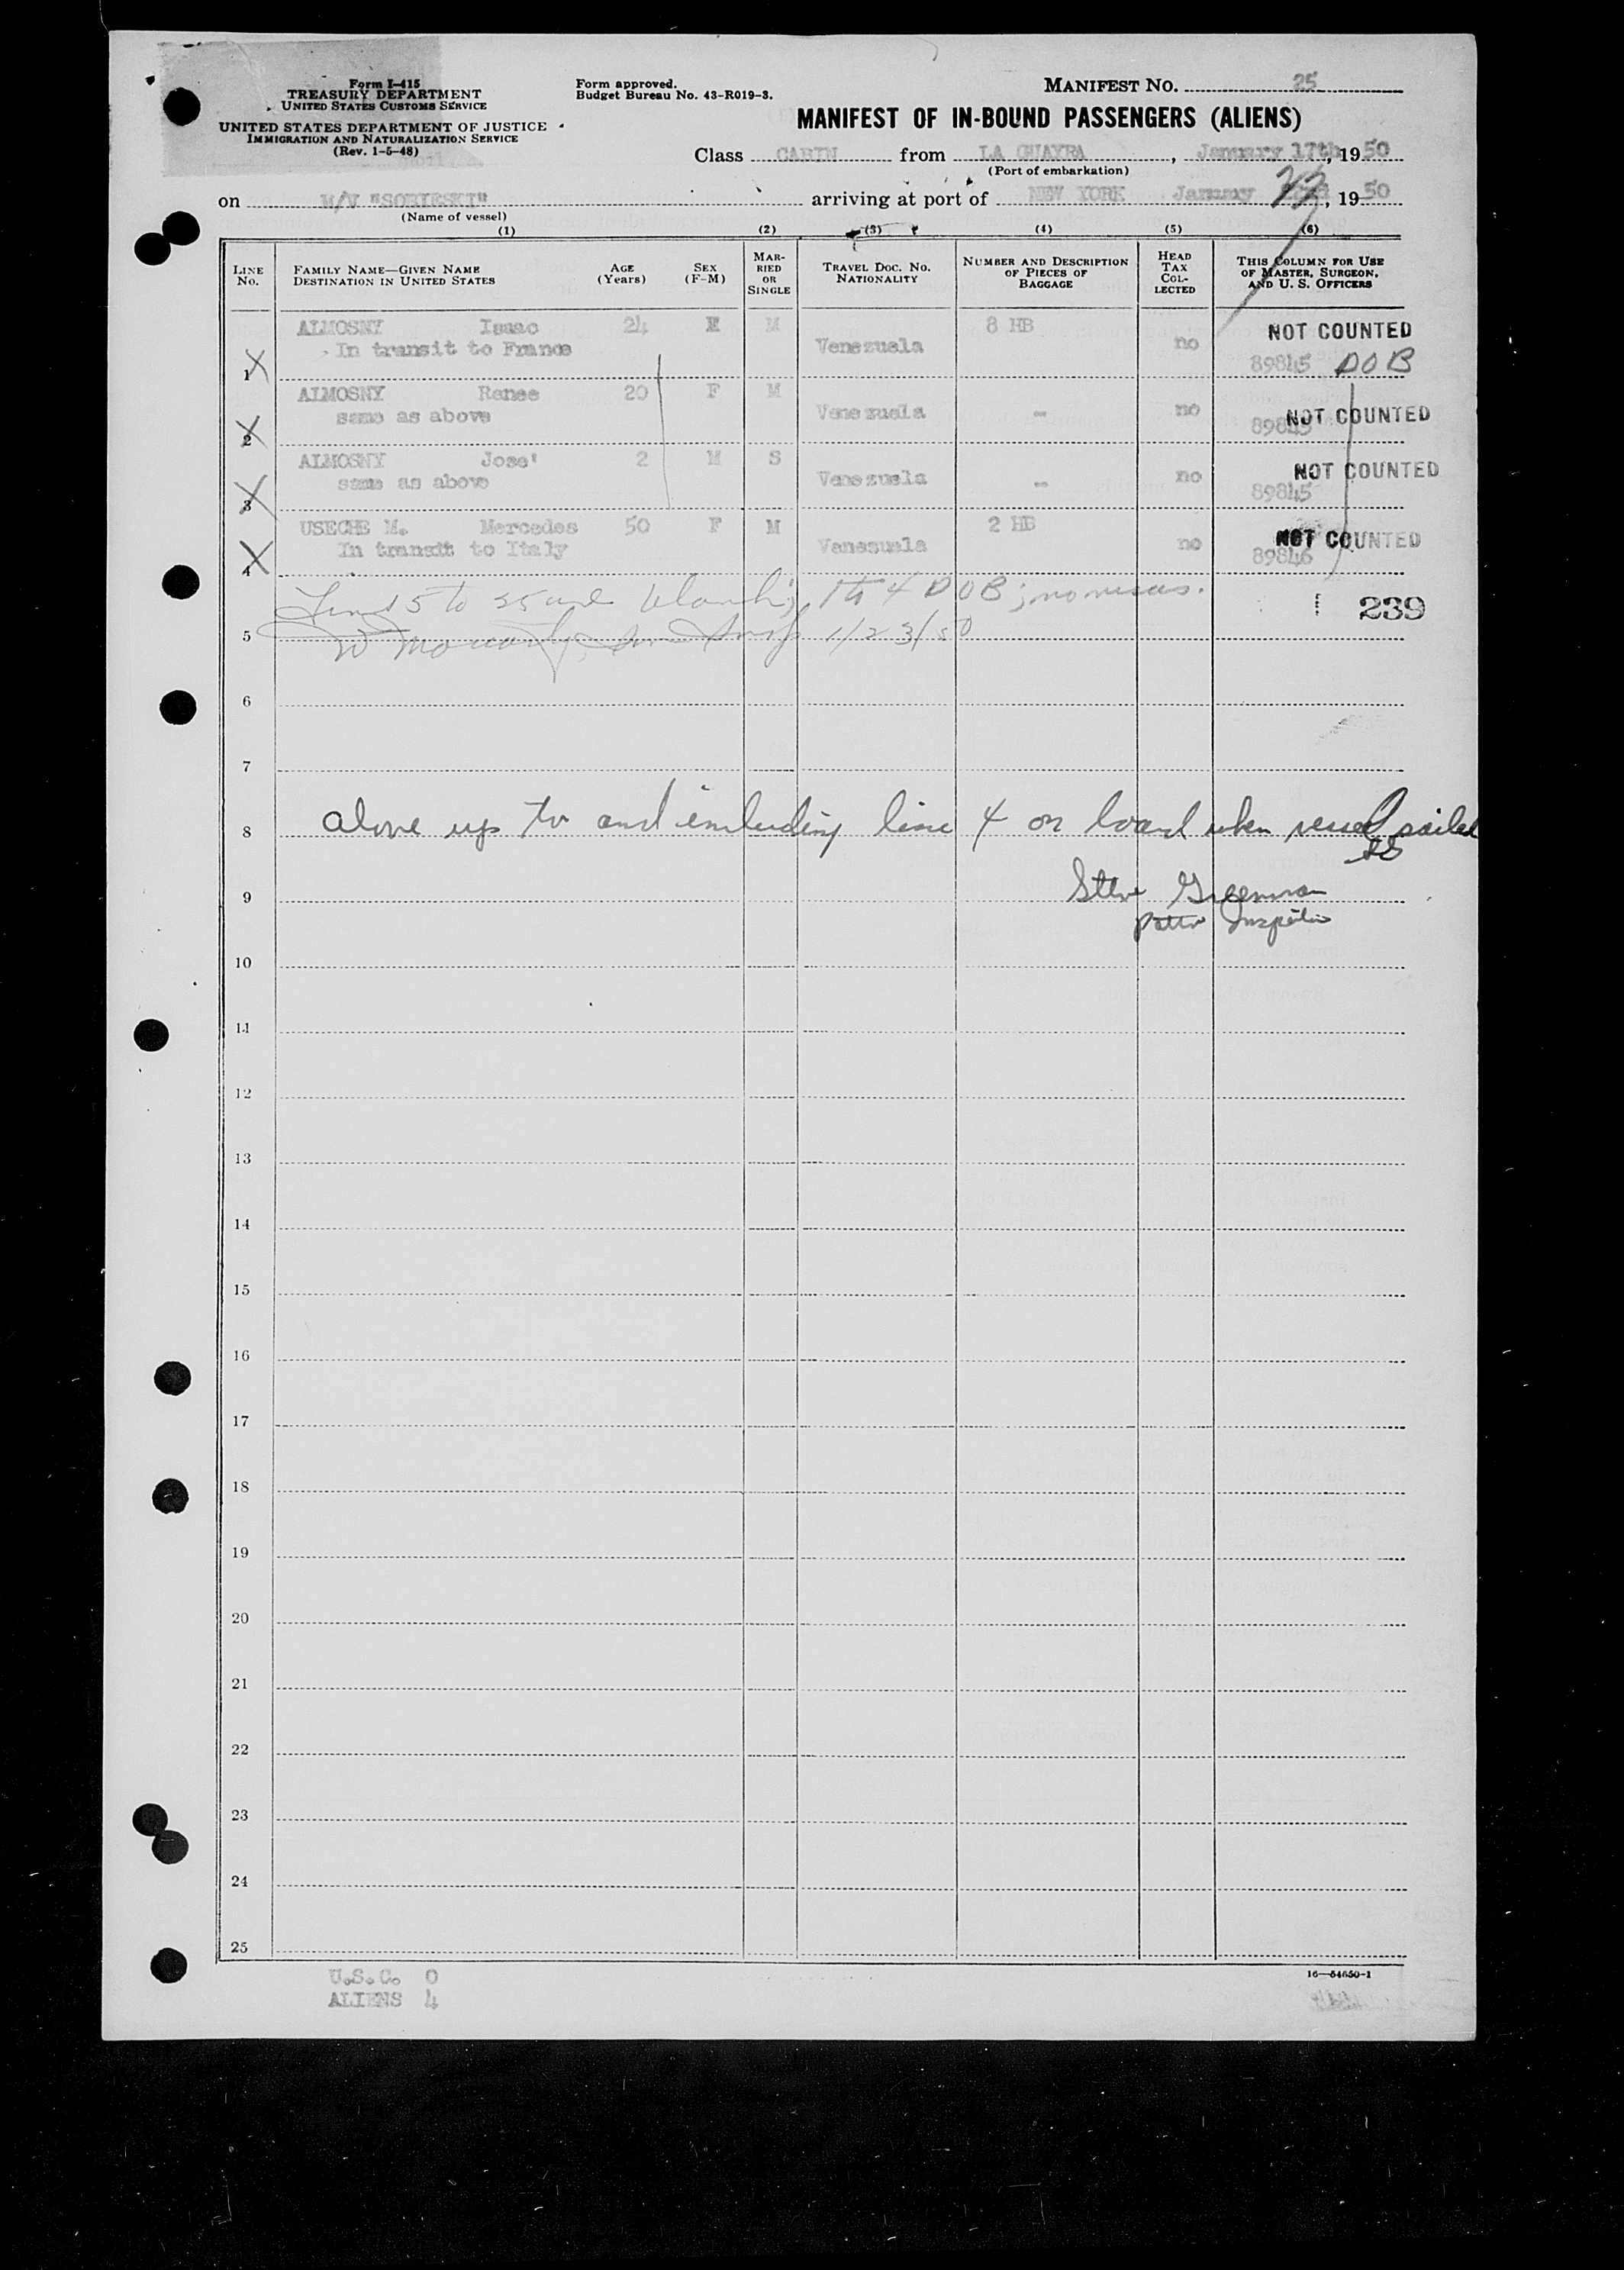 Form I-415
TREASURY DEPARTMENT
UNITED STATES CUSTOMS SERVICE
UNITED STATES DEPARTMENT OF JUSTICE
IMMIGRATION AND NATURALIZATION SERVICE
(Rev. 1-5-48)
Form approved.
Budget Bureau No. 43-R019-3.
MANIFEST NO. 25
MANIFEST OF IN-BOUND PASSENGERS (ALIENS)
Class CABIN from LA GUAYRA, January 17th, 1950
(Port of embarkation)
on M/V "SOBIESKI" arriving at port of NEW YORK January 23, 1950
(Name of vessel)
(1) (2) (3) (4) (5) (6)
LINE NO. FAMILY NAME—GIVEN NAME DESTINATION IN UNITED STATES AGE (Years) SEX (F-M) MARRIED OR SINGLE TRAVEL DOC. NO. NATIONALITY NUMBER AND DESCRIPTION OF PIECES OF BAGGAGE HEAD TAX COLLECTED THIS COLUMN FOR USE OF MASTER, SURGEON, AND U. S. OFFICERS
ALMOSNY Isaac 24 M 8 HB NOT COUNTED
1 X In transit to France Venezuela no 89845 DOB
ALMOSNY Renee 20 F M
2 X same as above Venezuela - no 89845 NOT COUNTED
ALMOSNY Jose' 2 M S NOT COUNTED
3 X same as above Venezuela - no 89845
USECHE M. Mercedes 50 F M 2 HB NOT COUNTED
4 X In transit to Italy Venezuela no 89846
Lines 5 to 25 are blank; 1 to 4 DOB; no visas.
239
5 1/23/50
6
7
8 above up to and including line 4 on board when vessel sailed
SG
9 Steve Greenman
Inspector
10
11
12
13
14
15
16
17
18
19
20
21
22
23
24
25
U.S.C. 0
ALIENS 4
16—54650-1